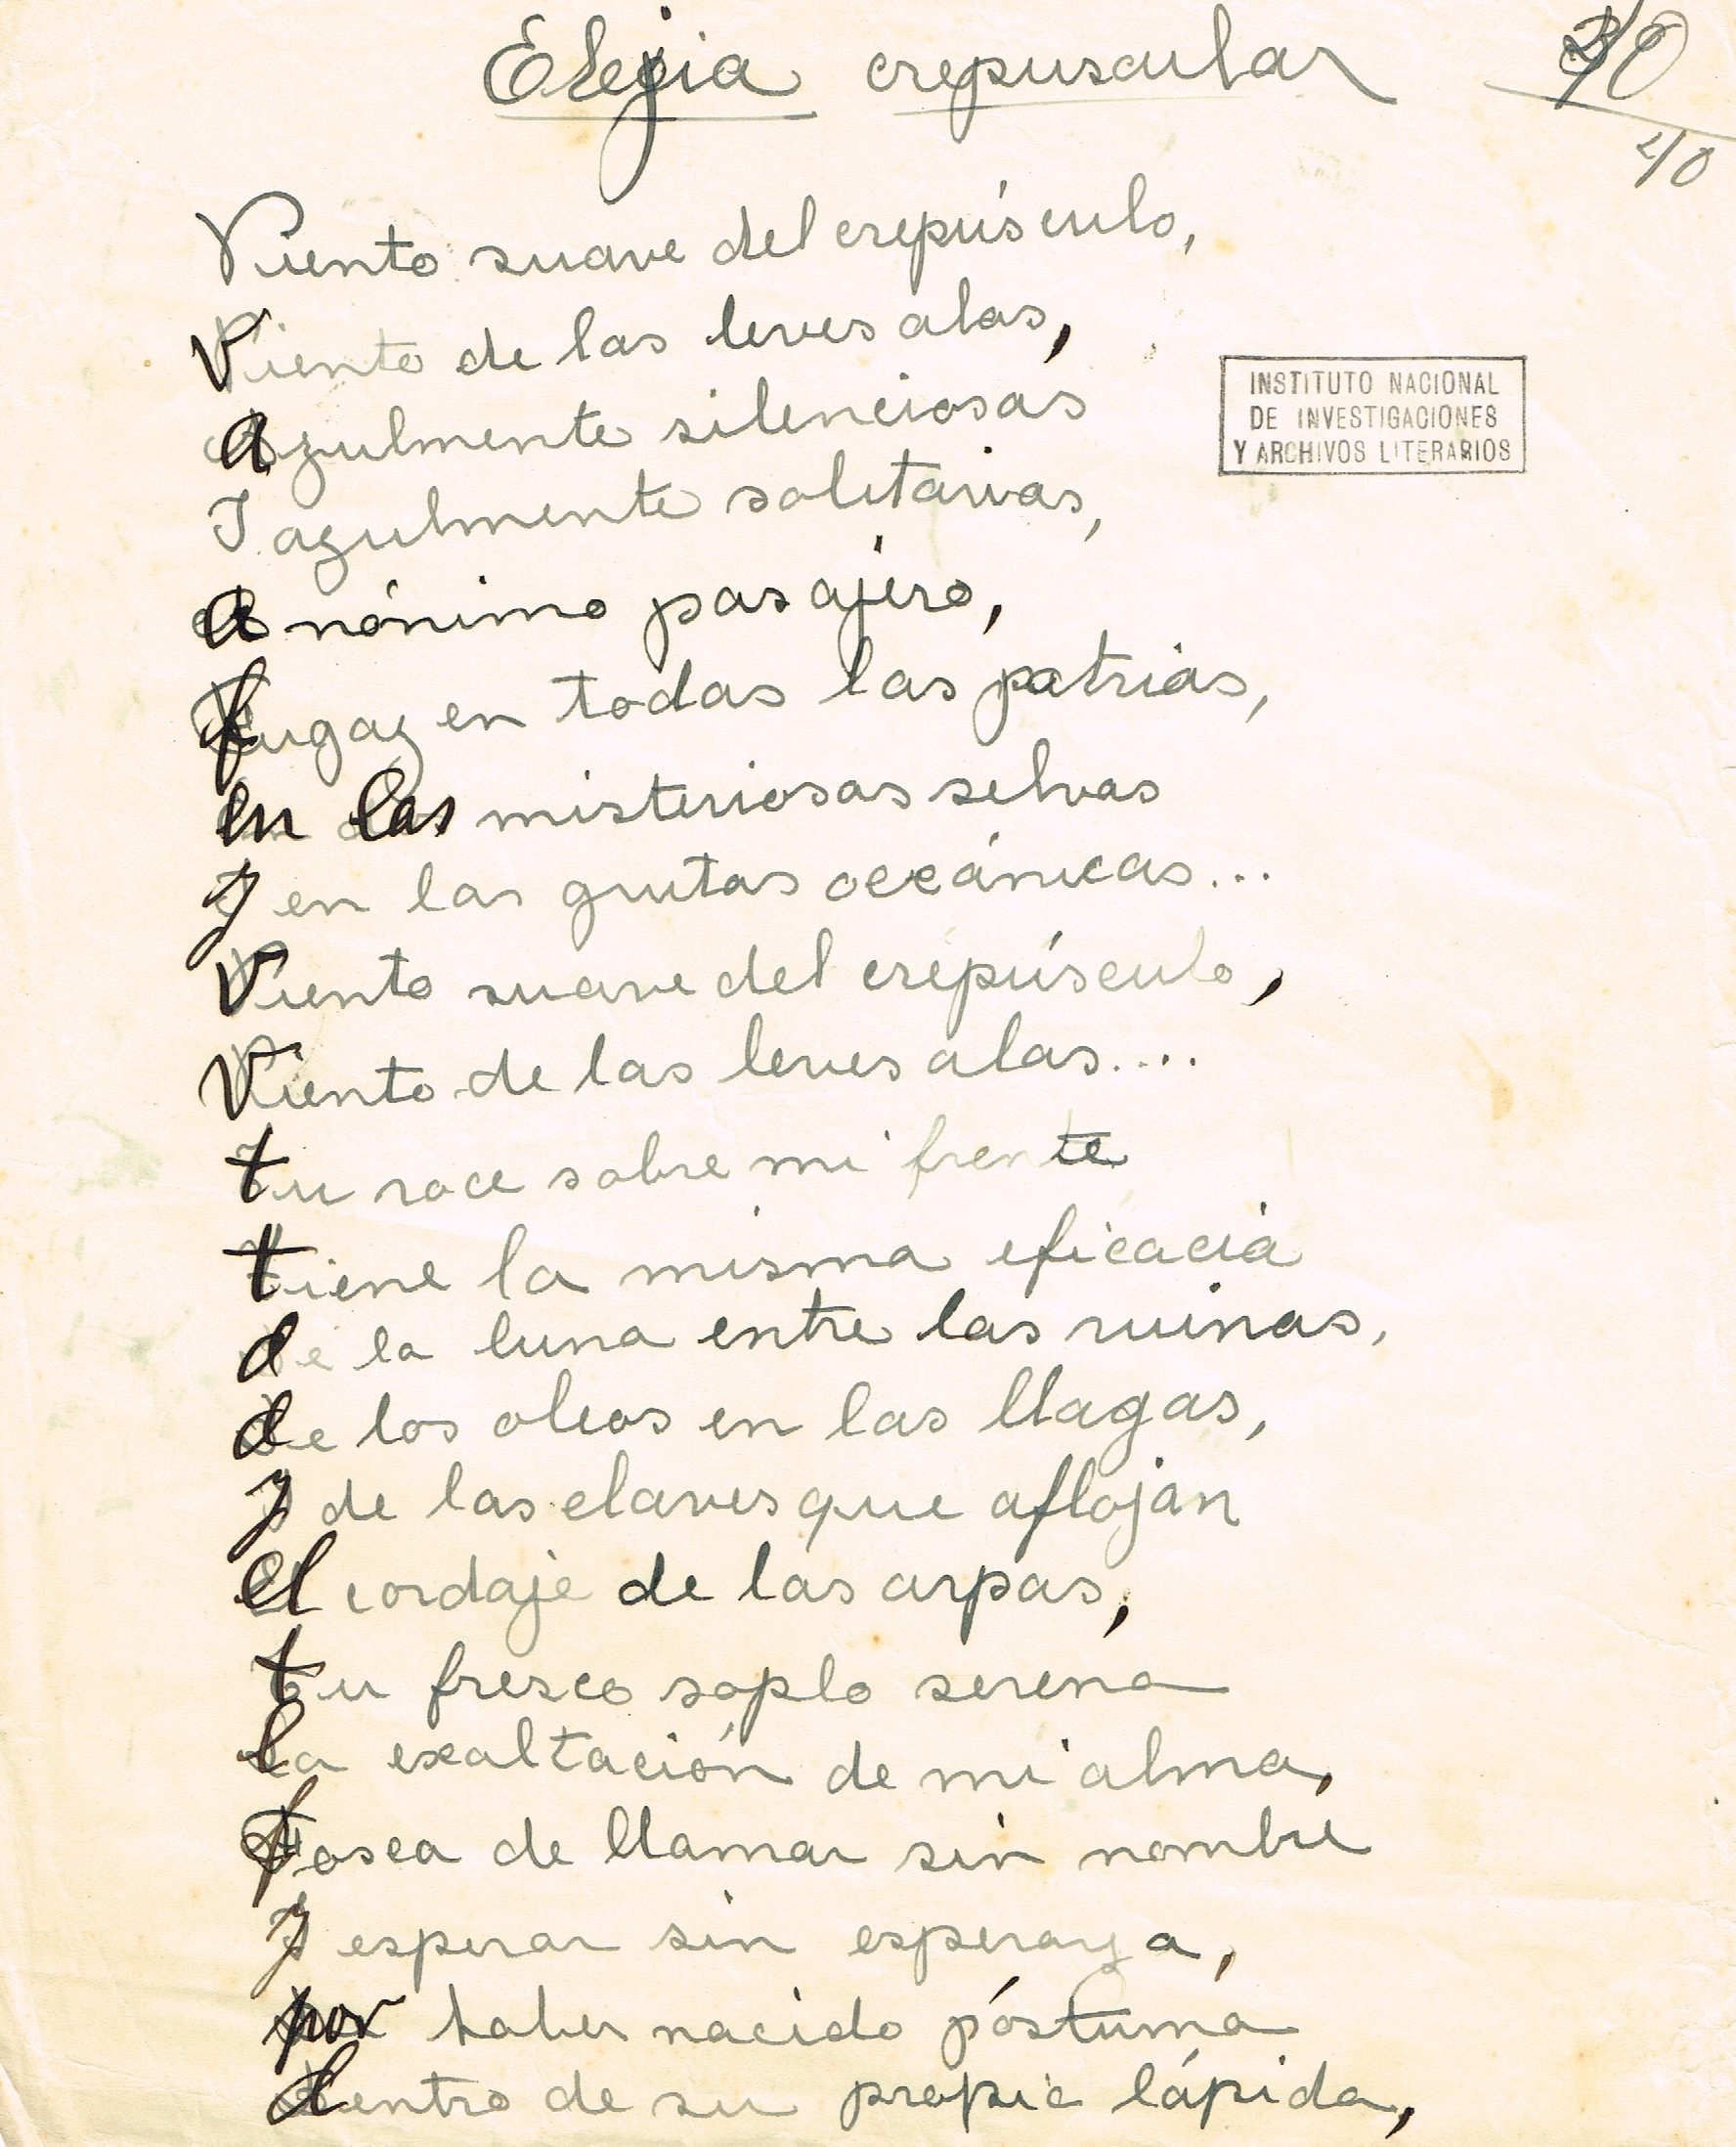 Elegia crepuscular
40
Viento suave del crepúsculo,
Viento de las leves alas,
Azulmente silenciosas
I azulmente solitarias,
Anónimo pasajero,
fugaz en todas las patrias,
en las misteriosas selvas
y en las grutas oceánicas...
Viento suave del crepúsculo,
Viento de las leves alas....
tu roce sobre mi frente
tiene la misma eficacia
de la luna entre las ruinas,
de los oleos en las llagas,
y de las claves que aflojan
el cordaje de las arpas,
tu fresco soplo serena
la exaltación de mi alma,
fosca de llamar sin nombre
y esperar sin esperanza,
por haber nacido póstuma
dentro de su propia lápida,
INSTITUTO NACIONAL
DE INVESTIGACIONES
Y ARCHIVOS LITERARIOS